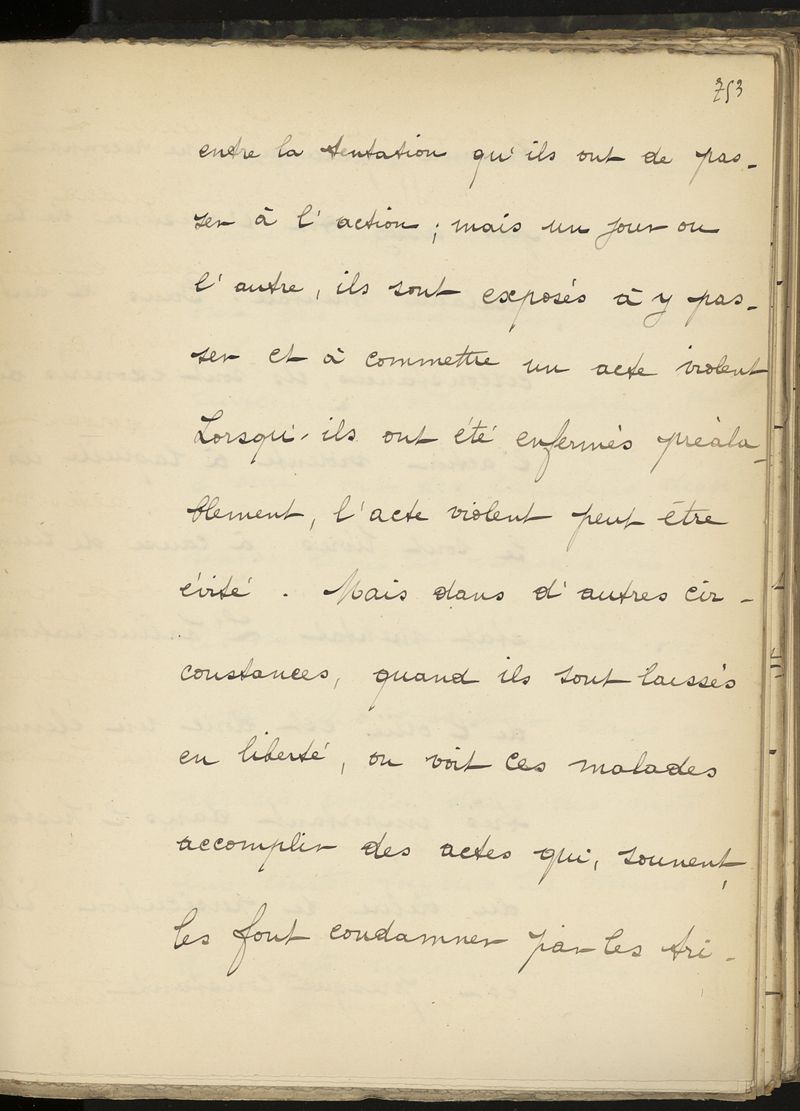 753
entre la tentation qu'ils ont de pas-
ser à l'action ; mais un jour ou
l'autre, ils sont exposés à y pas-
ser et à commettre un acte violent
Lorsqu'ils ont été enfermés préala-
blement, l'acte violent peut être
évité. Mais dans d'autres cir-
constances, quand ils sont laissés
en liberté, on voit ces malades
accomplir des actes qui, souvent,
les font condamner par les tri-